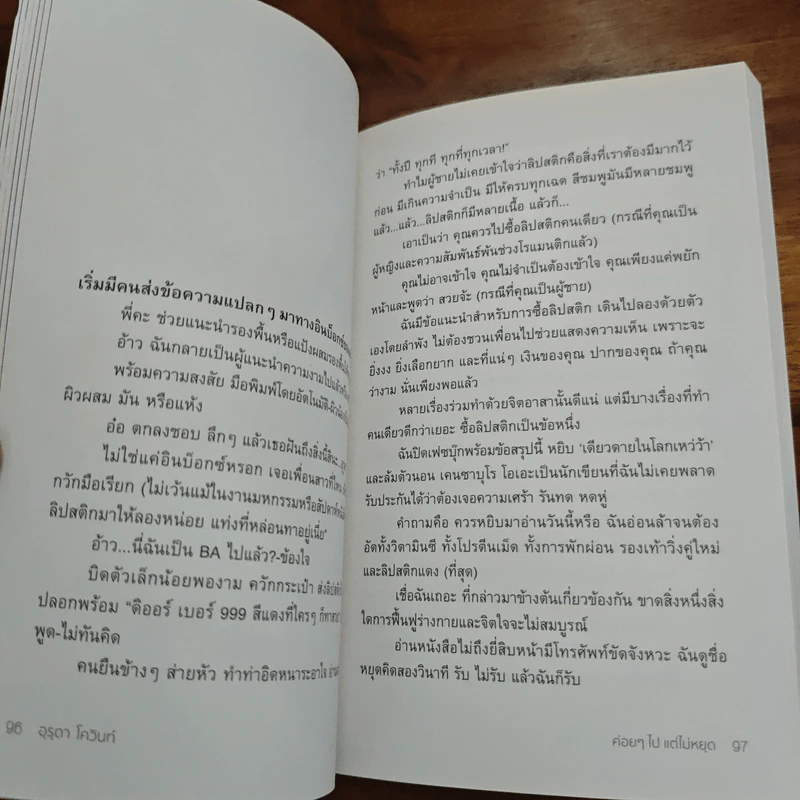 เริ่มมีคนส่งข้อความแปลกๆ มาทางอินบ็อกซ์
พี่คะ ช่วยแนะนำรองพื้นหรือแป้งผสมรองพื้น
อ้าว ฉันกลายเป็นผู้แนะนำความงามไปแล้ว
พร้อมความสงสัย มือพิมพ์โดยอัตโนมัติ-ผิว
ผิวผสม มัน หรือแห้ง
อ๋อ ตกลงชอบ ลึกๆ แล้วเธอฝันถึงสิ่งนี้สินะ
ไม่ใช่แค่อินบ็อกซ์หรอก เจอเพื่อนสาวที่ไหน
กวักมือเรียก (ไม่เว้นแม้ในงานมหกรรมหรือสัปดาห์
ลิปสติกมาให้ลองหน่อย แท่งที่หล่อนทาอยู่เนี่ย"
อ้าว...นี่ฉันเป็น BA ไปแล้ว?-ข้องใจ
บิดตัวเล็กน้อยพองาม ควักกระเป๋า ส่งลิปสติก
ปลอกพร้อม "ดิออร์ เบอร์ 999 สีแดงที่ใครๆ ก็
พูด-ไม่ทันคิด
คนยืนข้างๆ ส่ายหัว ทำท่าอิดหนาระอาใจ
96 อุรุดา โควินท์
ว่า "ทั้งปี ทุกที ทุกที่ทุกเวลา!"
ทำไมผู้ชายไม่เคยเข้าใจว่าลิปสติกคือสิ่งที่เราต้องมีมากไว้
ก่อน มีเกินความจำเป็น มีให้ครบทุกเฉด สีชมพูมันมีหลายชมพู
แล้ว...แล้ว...ลิปสติกก็มีหลายเนื้อ แล้วก็...
เอาเป็นว่า คุณควรไปซื้อลิปสติกคนเดียว (กรณีที่คุณเป็น
ผู้หญิงและความสัมพันธ์พ้นช่วงโรแมนติกแล้ว)
คุณไม่อาจเข้าใจ คุณไม่จำเป็นต้องเข้าใจ คุณเพียงแค่พยัก
หน้าและพูดว่า สวยจ้ะ (กรณีที่คุณเป็นผู้ชาย)
ฉันมีข้อแนะนำสำหรับการซื้อลิปสติก เดินไปลองด้วยตัว
เองโดยลำพัง ไม่ต้องชวนเพื่อนไปช่วยแสดงความเห็น เพราะจะ
ยิ่งงง ยิ่งเลือกยาก และที่แน่ๆ เงินของคุณ ปากของคุณ ถ้าคุณ
ว่างาม นั่นเพียงพอแล้ว
หลายเรื่องร่วมทำด้วยจิตอาสานั้นดีแน่ แต่มีบางเรื่องที่ทำ
คนเดียวดีกว่าเยอะ ซื้อลิปสติกเป็นข้อหนึ่ง
ฉันปิดเฟซบุ๊กพร้อมข้อสรุปนี้ หยิบ 'เดียวดายในโลกเหว่ว้า'
และล้มตัวนอน เคนซาบุโร โอเอะเป็นนักเขียนที่ฉันไม่เคยพลาด
รับประกันได้ว่าต้องเจอความเศร้า รันทด หดหู่
คำถามคือ ควรหยิบมาอ่านวันนี้หรือ ฉันอ่อนล้าจนต้อง
อัดทั้งวิตามินซี ทั้งโปรตีนเม็ด ทั้งการพักผ่อน รองเท้าวิ่งคู่ใหม่
และลิปสติกแดง (ที่สุด)
เชื่อฉันเถอะ ที่กล่าวมาข้างต้นเกี่ยวข้องกัน ขาดสิ่งหนึ่งสิ่ง
ใดการฟื้นฟูร่างกายและจิตใจจะไม่สมบูรณ์
อ่านหนังสือไม่ถึงยี่สิบหน้ามีโทรศัพท์ขัดจังหวะ ฉันดูชื่อ
หยุดคิดสองวินาที รับ ไม่รับ แล้วฉันก็รับ
ค่อยๆ ไป แต่ไม่หยุด 97